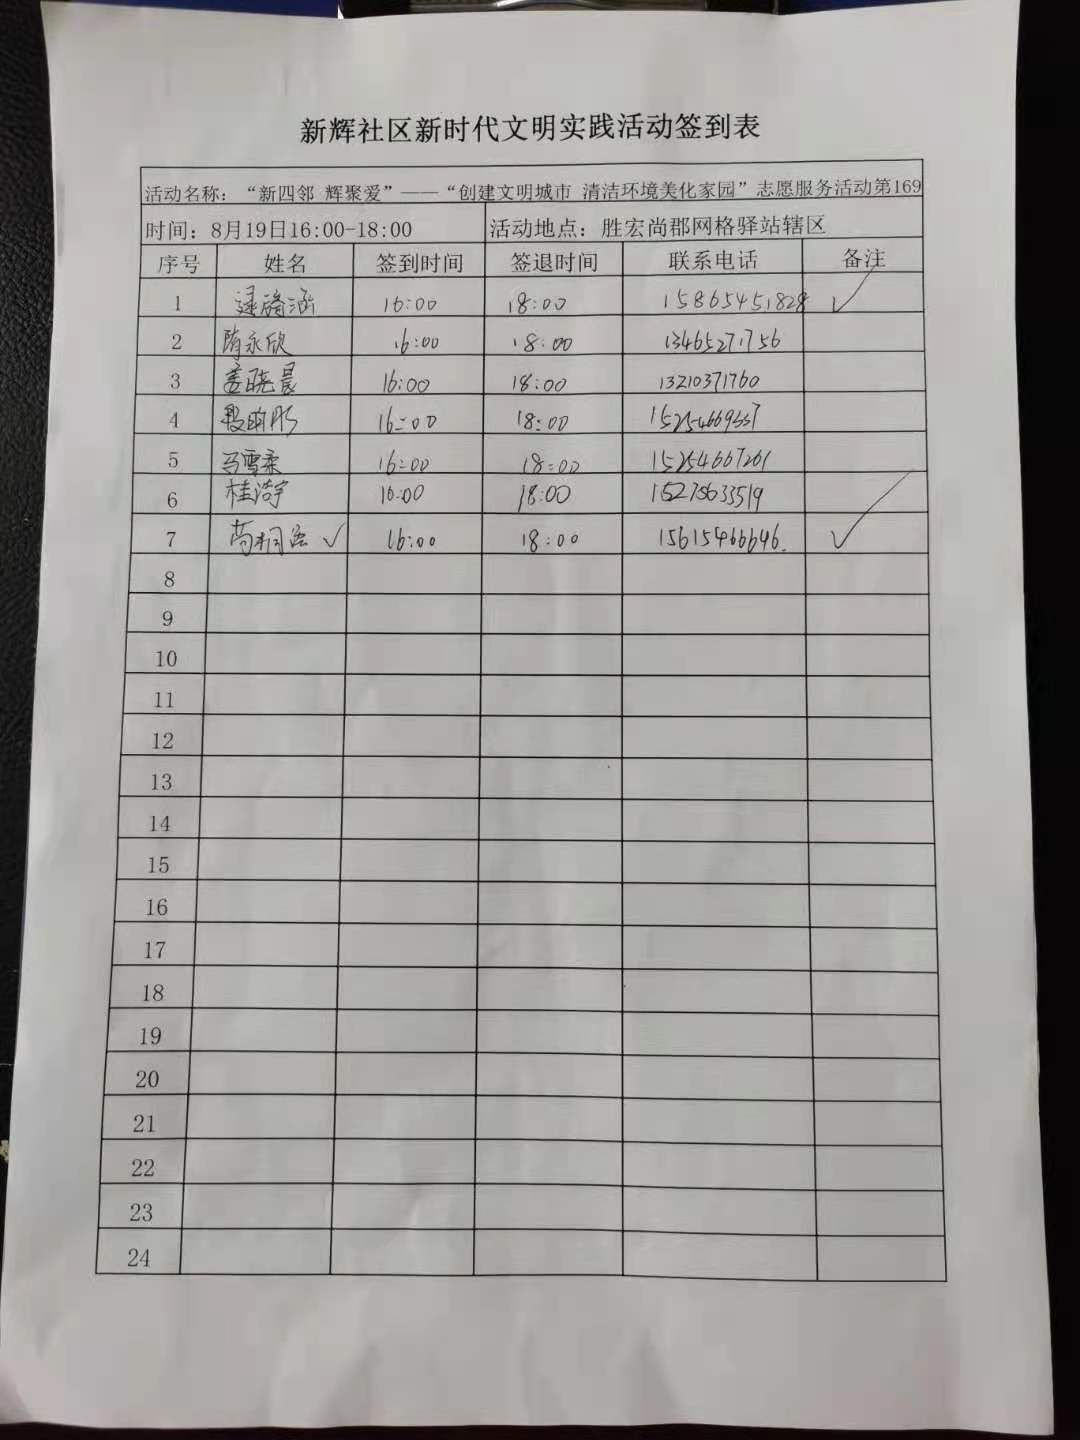 新辉社区新时代文明实践活动签到表
活动名称：“新四邻 辉聚爱”——“创建文明城市 清洁环境美化家园”志愿服务活动第169
时间：8月19日16:00-18:00 活动地点：胜宏尚郡网格驿站辖区
序号 姓名 签到时间 签退时间 联系电话 备注
1 16:00 18:00 15865451828 ✓
2 隋永欣 16:00 18:00 13465271756
3 姜晓晨 16:00 18:00 13210371760
4 16:00 18:00
5 马雪柔 16:00 18:00 15254667261
6 桂浩宇 16:00 18:00 15275633519
7 ✓ 16:00 18:00 15615466646. ✓
8
9
10
11
12
13
14
15
16
17
18
19
20
21
22
23
24